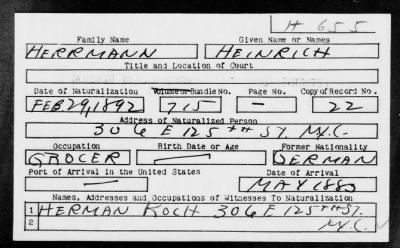 H 655
Family Name Given Name or Names
HERRMANN HEINRICH
Title and Location of Court
Date of Naturalization Volume or Bundle No. Page No. Copy of Record No.
FEB 29, 1892 715 — 22
Address of Naturalized Person
306 E 125TH ST. N.Y.C.
Occupation Birth Date or Age Former Nationality
GROCER — GERMAN
Port of Arrival in the United States Date of Arrival
— MAY 1883
Names, Addresses and Occupations of Witnesses To Naturalization
1 HERMAN KOCH 306 E 125TH ST.
2 N.Y.C.